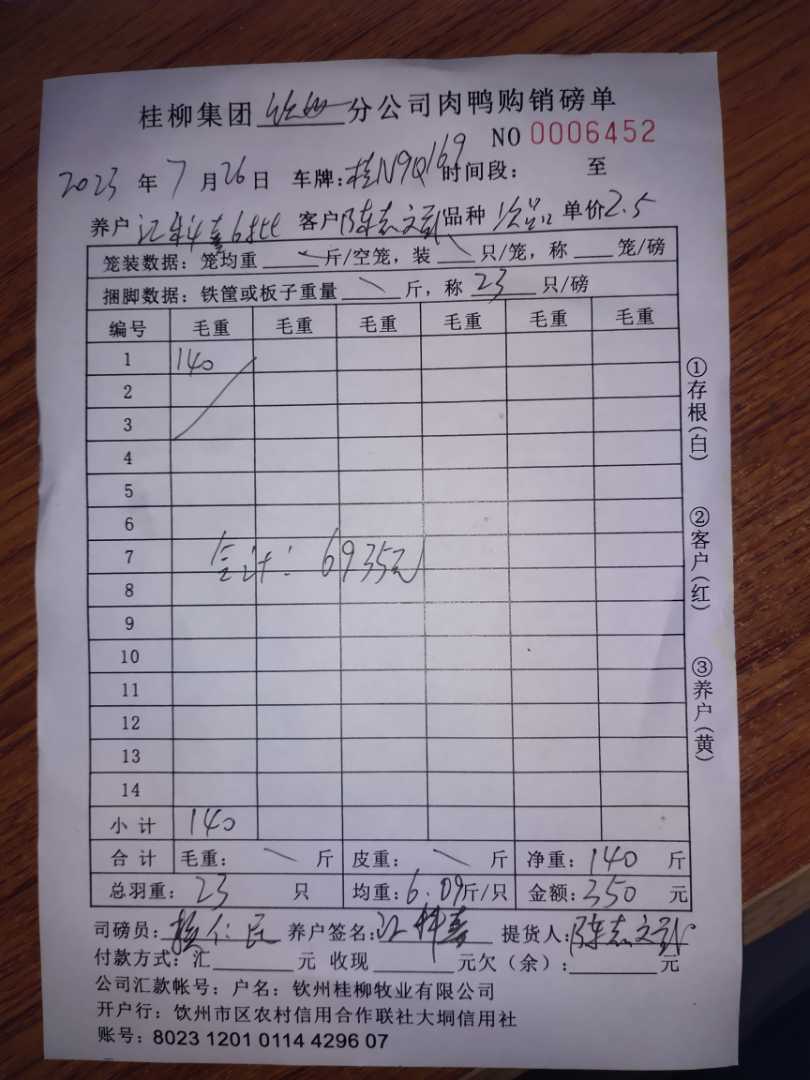 桂柳集团钦州分公司肉鸭购销磅单
NO 0006452
2023年7月26日 车牌:桂N9Q169时间段: 至
养户 客户陈志文 品种次品单价2.5
笼装数据: 笼均重 斤/空笼, 装 只/笼, 称 笼/磅
捆脚数据: 铁筐或板子重量 斤, 称23只/磅
编号 毛重 毛重 毛重 毛重 毛重 毛重
1 140
2
3
4
5
6
7
8
9
10
11
12
13
14
合计: 6935元
小计 140
合计 毛重: 斤 皮重: 斤 净重: 140 斤
总羽重: 23 只 均重: 6.09斤/只 金额: 350 元
司磅员: 仁民 养户签名: 提货人: 陈志文
付款方式: 汇 元 收现 元欠(余): 元
公司汇款帐号: 户名: 钦州桂柳牧业有限公司
开户行: 钦州市区农村信用合作联社大垌信用社
账号: 8023 1201 0114 4296 07
①存根(白)
②客户(红)
③养户(黄)